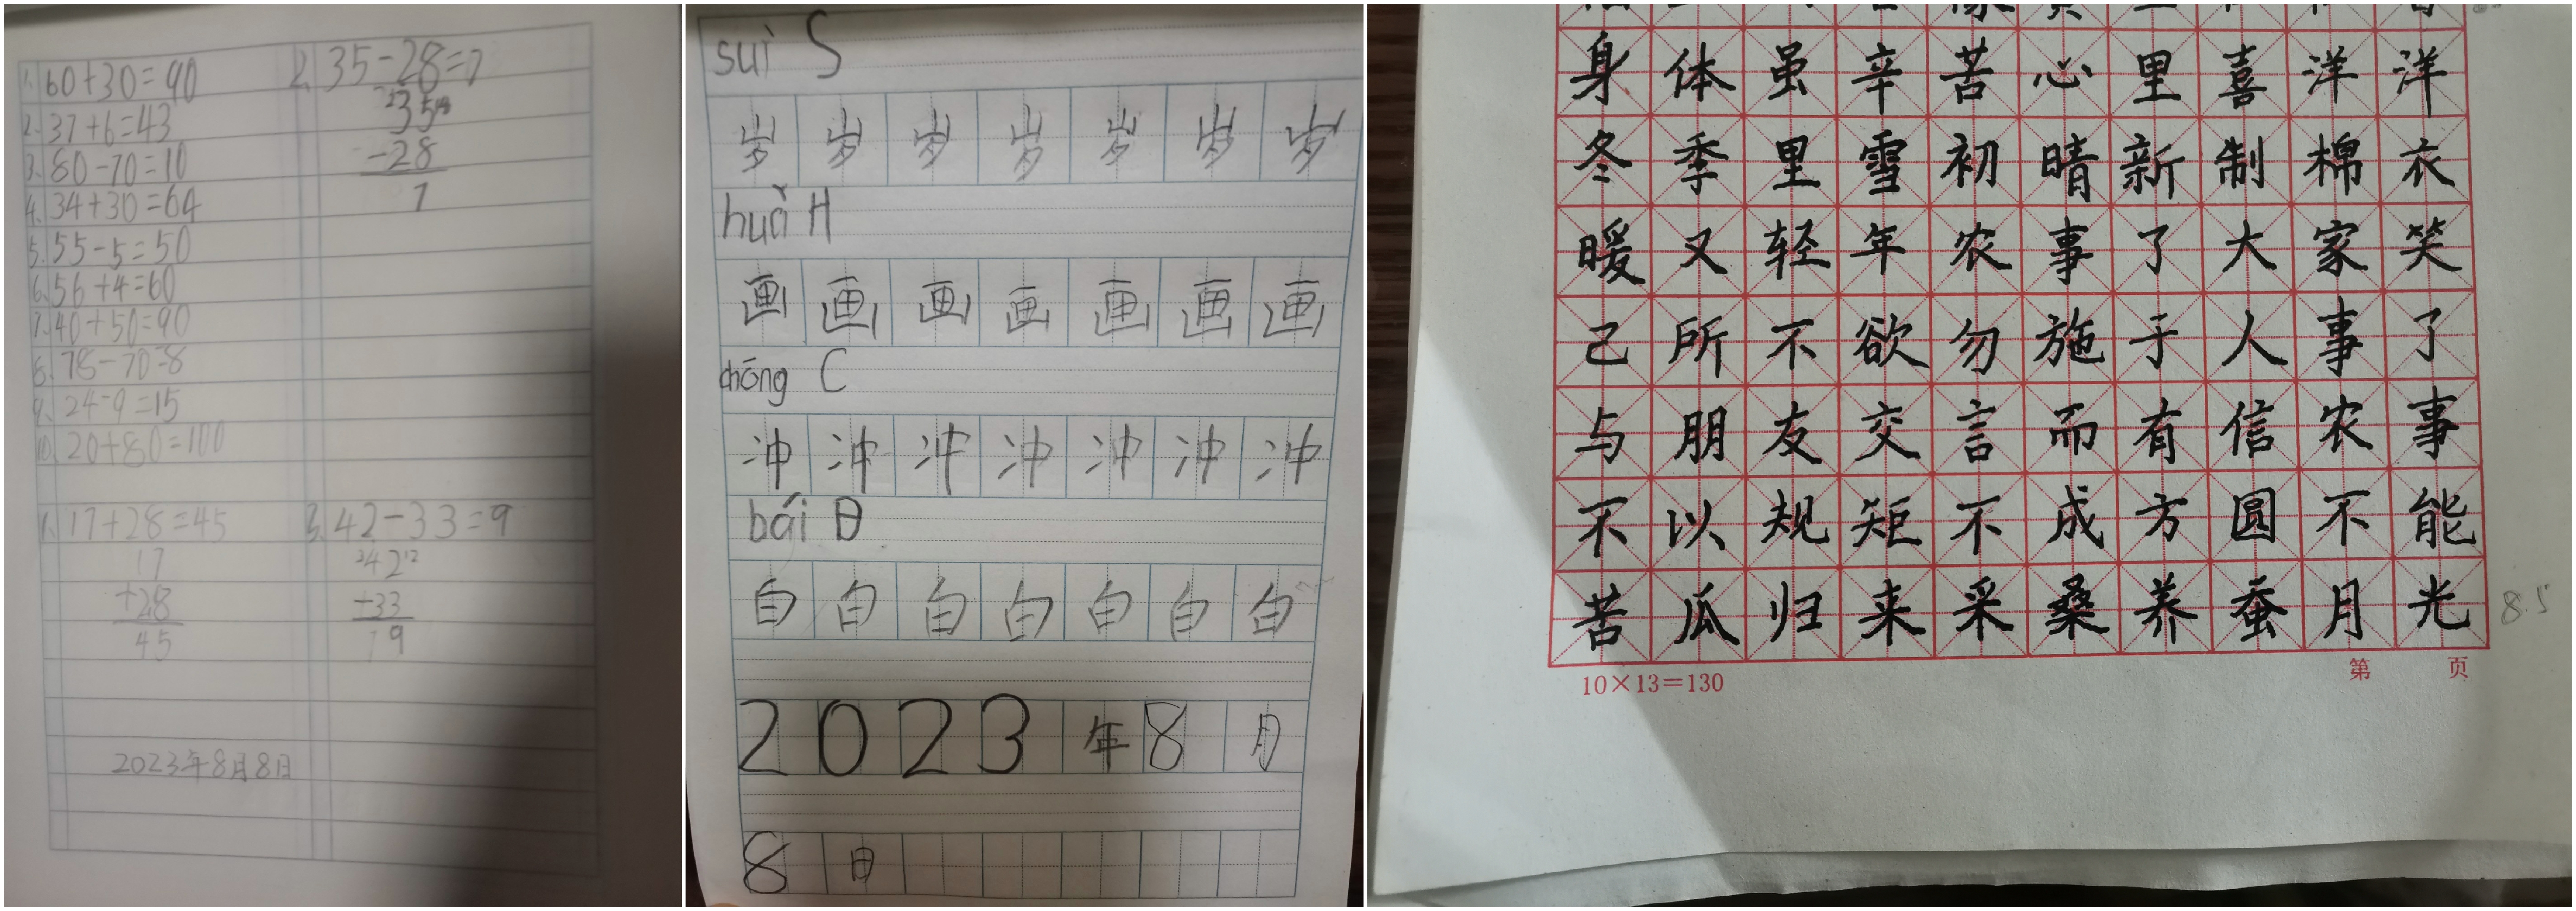 1. 60+30=90
2. 37+6=43
3. 80-70=10
4. 34+30=64
5. 55-5=50
6. 56+4=60
7. 40+50=90
8. 78-70=8
9. 24-9=15
10. 20+80=100
2. 35-28=7
35
-28
7
1. 17+28=45
17
+28
45
3. 42-33=9
42
-33
9
2023年8月8日
suì S
岁 岁 岁 岁 岁 岁 岁
huǎ H
画 画 画 画 画 画 画
chōng C
冲 冲 冲 冲 冲 冲 冲
bái B
白 白 白 白 白 白 白
2 0 2 3 年 8 月
8 日
身体虽辛苦心里喜洋洋
冬季里雪初晴新制棉衣
暖又轻年农事了大家笑
己所不欲勿施于人事了
与朋友交言而有信农事
不以规矩不成方圆不能
苦瓜归来采桑养蚕月光
8.5
10×13=130
第 页